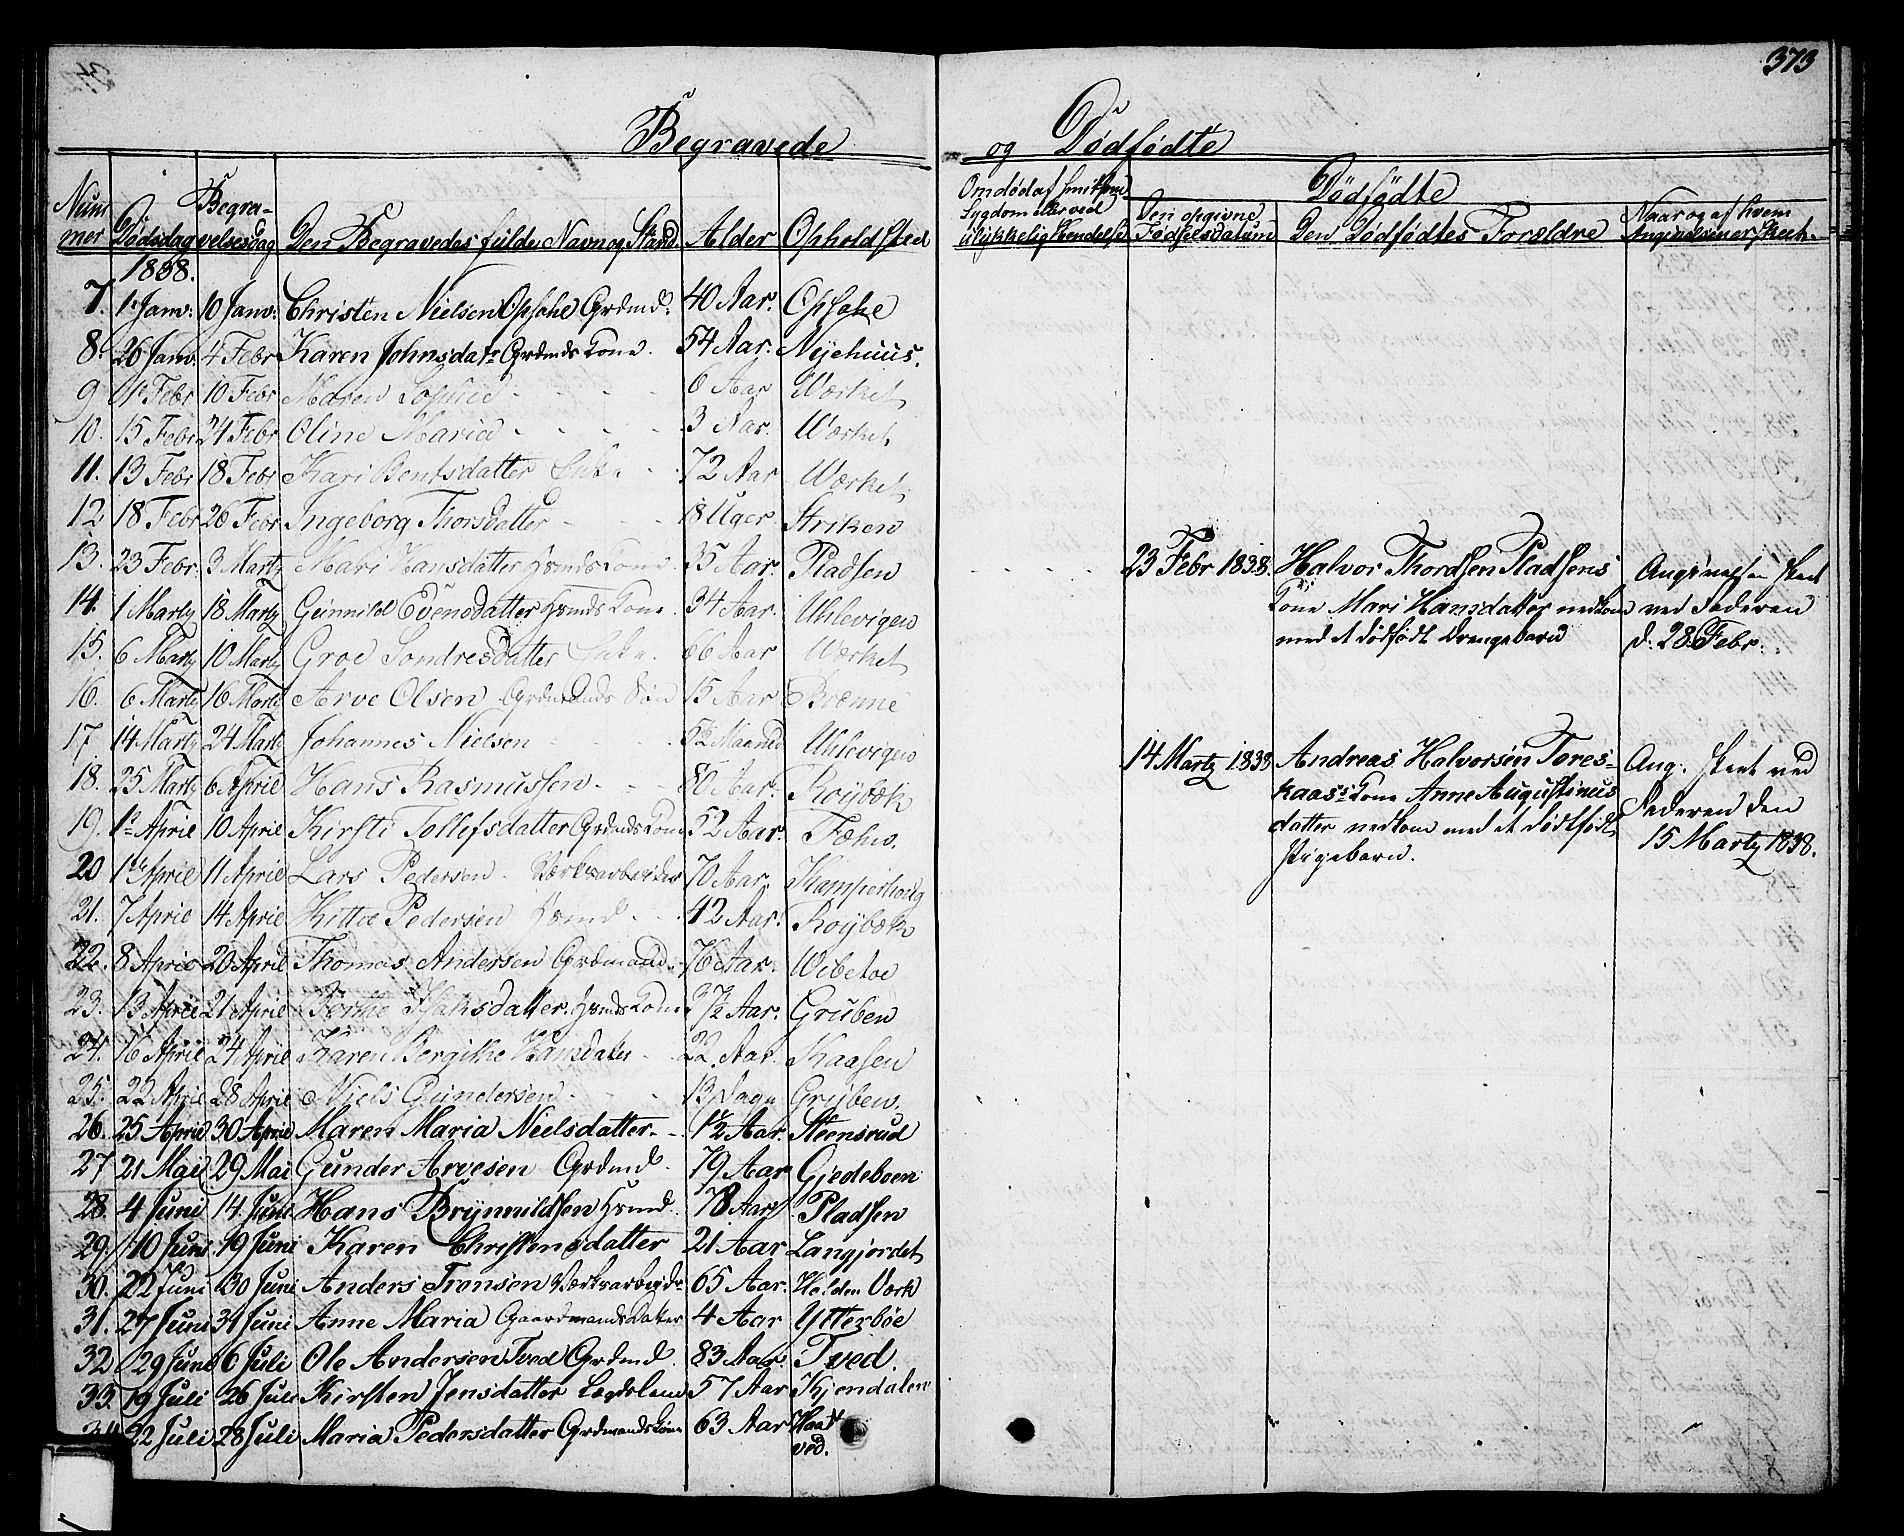 373
Begravede
og Dødfødte
Num mer Dødsdag Begra- velsesdag Den Begravedes fulde Navn og Stand Alder Opholdsted
Om død af smitsom Sygdom eller ved ulykkelig Hendelse Den opgivne Fødselsdatum Dødfødte Den Dødfødtes Forældre Naar og af hvem Angivelsen er skeet.
1838.
7. 1 Janv: 10 Janv: Christen Nielsen Opsahe Grdmd: 40 Aar. Opsahe
8. 26 Janv. 4 Febr Karen Johnsdatr Grdmds Kone. 54 Aar: Nyehuus.
9 Febr 10 Febr Maren Sophie 6 Aar Værket
10. 15 Febr 24 Febr Oline Maria 3 Aar. Værket
11. 13 Febr 18 Febr Kari Bentsdatter Enke 72 Aar Værket
12 18 Febr 26 Febr Ingeborg Thorsdatter 18 Uger Striken
13. 23 Febr. 3 Martz Mari Hansdatter Hsmds Kone 35 Aar. Pladsen
14. 1 Martz 18 Martz Gunnild Evensdatter Hsmds Kone. 34 Aar. Uhlevigen
15. 6 Martz 10 Martz Groe Sondresdatter Enke. 86 Aar Værket
16. 6 Martz 16 Martz Arve Olsen Grdmands Søn 15 Aar Brænne
17 14 Martz 24 Martz Johannes Nielsen 5½ Maaned Uhlevigen
18. 25 Martz 6 April Hans Rasmussen 80 Aar. Roybæk
19. 1 April 10 April Kirsti Tollefsdatter Grdmds Kone 52 Aar. Fæhn.
20 1 April 11 April Lars Pedersen Værksarbeider 70 Aar Kamperhoug
21. 7 April 14 April Kittel Pedersen Hsmd 42 Aar. Roybæk
22. 8 April 20 April Thomas Andersen Grdmand 76 Aar. Vibetoe
23. 13 April 21 April Berthe Isaksdatter Hsmds Kone 37½ Aar. Gruben
24. 16 April 24 April Karen Bergithe Hansdatter 22 Aar Kaasen
25. 22 April 28 April Niels Gundersen 13 Dage Gruben.
26. 25 April 30 April Maren Maria Nielsdatter 1½ Aar. Steensrud
27 21 Mai 29 Mai Gunder Arvesen Grdmd. 79 Aar Gjedeboen
28. 4 Juni 14 Juni Hans Brynnildsen Hsmd. 78 Aar Pladsen
29 10 Juni 19 Juni Karen Christensdatter 21 Aar Langjordet
30. 22 Juni 30 Juni Anders Tronsen Værksarbeidr 65 Aar. Holden Værk
31. 27 Juni 31 Juni Anne Maria Gaardmands Datter 4 Aar Ytterböe
32 29 Juni 6 Juli Ole Andersen Tved Grdmd. 83 Aar. Tved.
33. 19 Juli 26 Juli Kirsten Jensdatter Lægdslem 57 Aar Kjendalen
34 22 Juli 28 Juli Maria Pedersdatter Grdmands Kone 63 Aar Haat
ved.
23 Febr 1838. Halvor Thordsen Pladsens
Kone Mari Hansdatter nedkom
med et dödfödt Drengebarn
Angivelsen skeet
ved Faderen
d. 28 Febr.
14 Martz 1838 Andreas Halvorsen Tores-
kaass Kone Anne Augustinus
datter nedkom med et dödtfödt
Pigebarn.
Ang. skeet ved
Faderen den
15 Martz 1838.